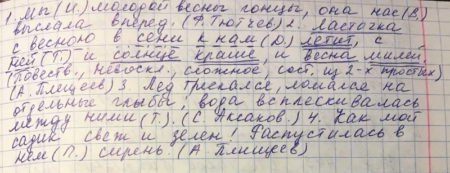 1. Мы (И.) молодой весны гонцы, она нас (В.)
выслала вперед. (Ф. Тютчев) 2. Ласточка
с весною в сени к нам (Д.) летит, с
ней (Т.) и солнце краше, и весна милей.
(Повеств., невоскл., сложное, сост. из 2-х простых)
(А. Плещеев) 3. Лед трескался, ломался на
отдельные глыбы, вода всплескивалась
между ними (Т.). (С. Аксаков.) 4. Как мой
садик свеж и зелен! Распустилась в
нем (П.) сирень. (А. Плещеев)